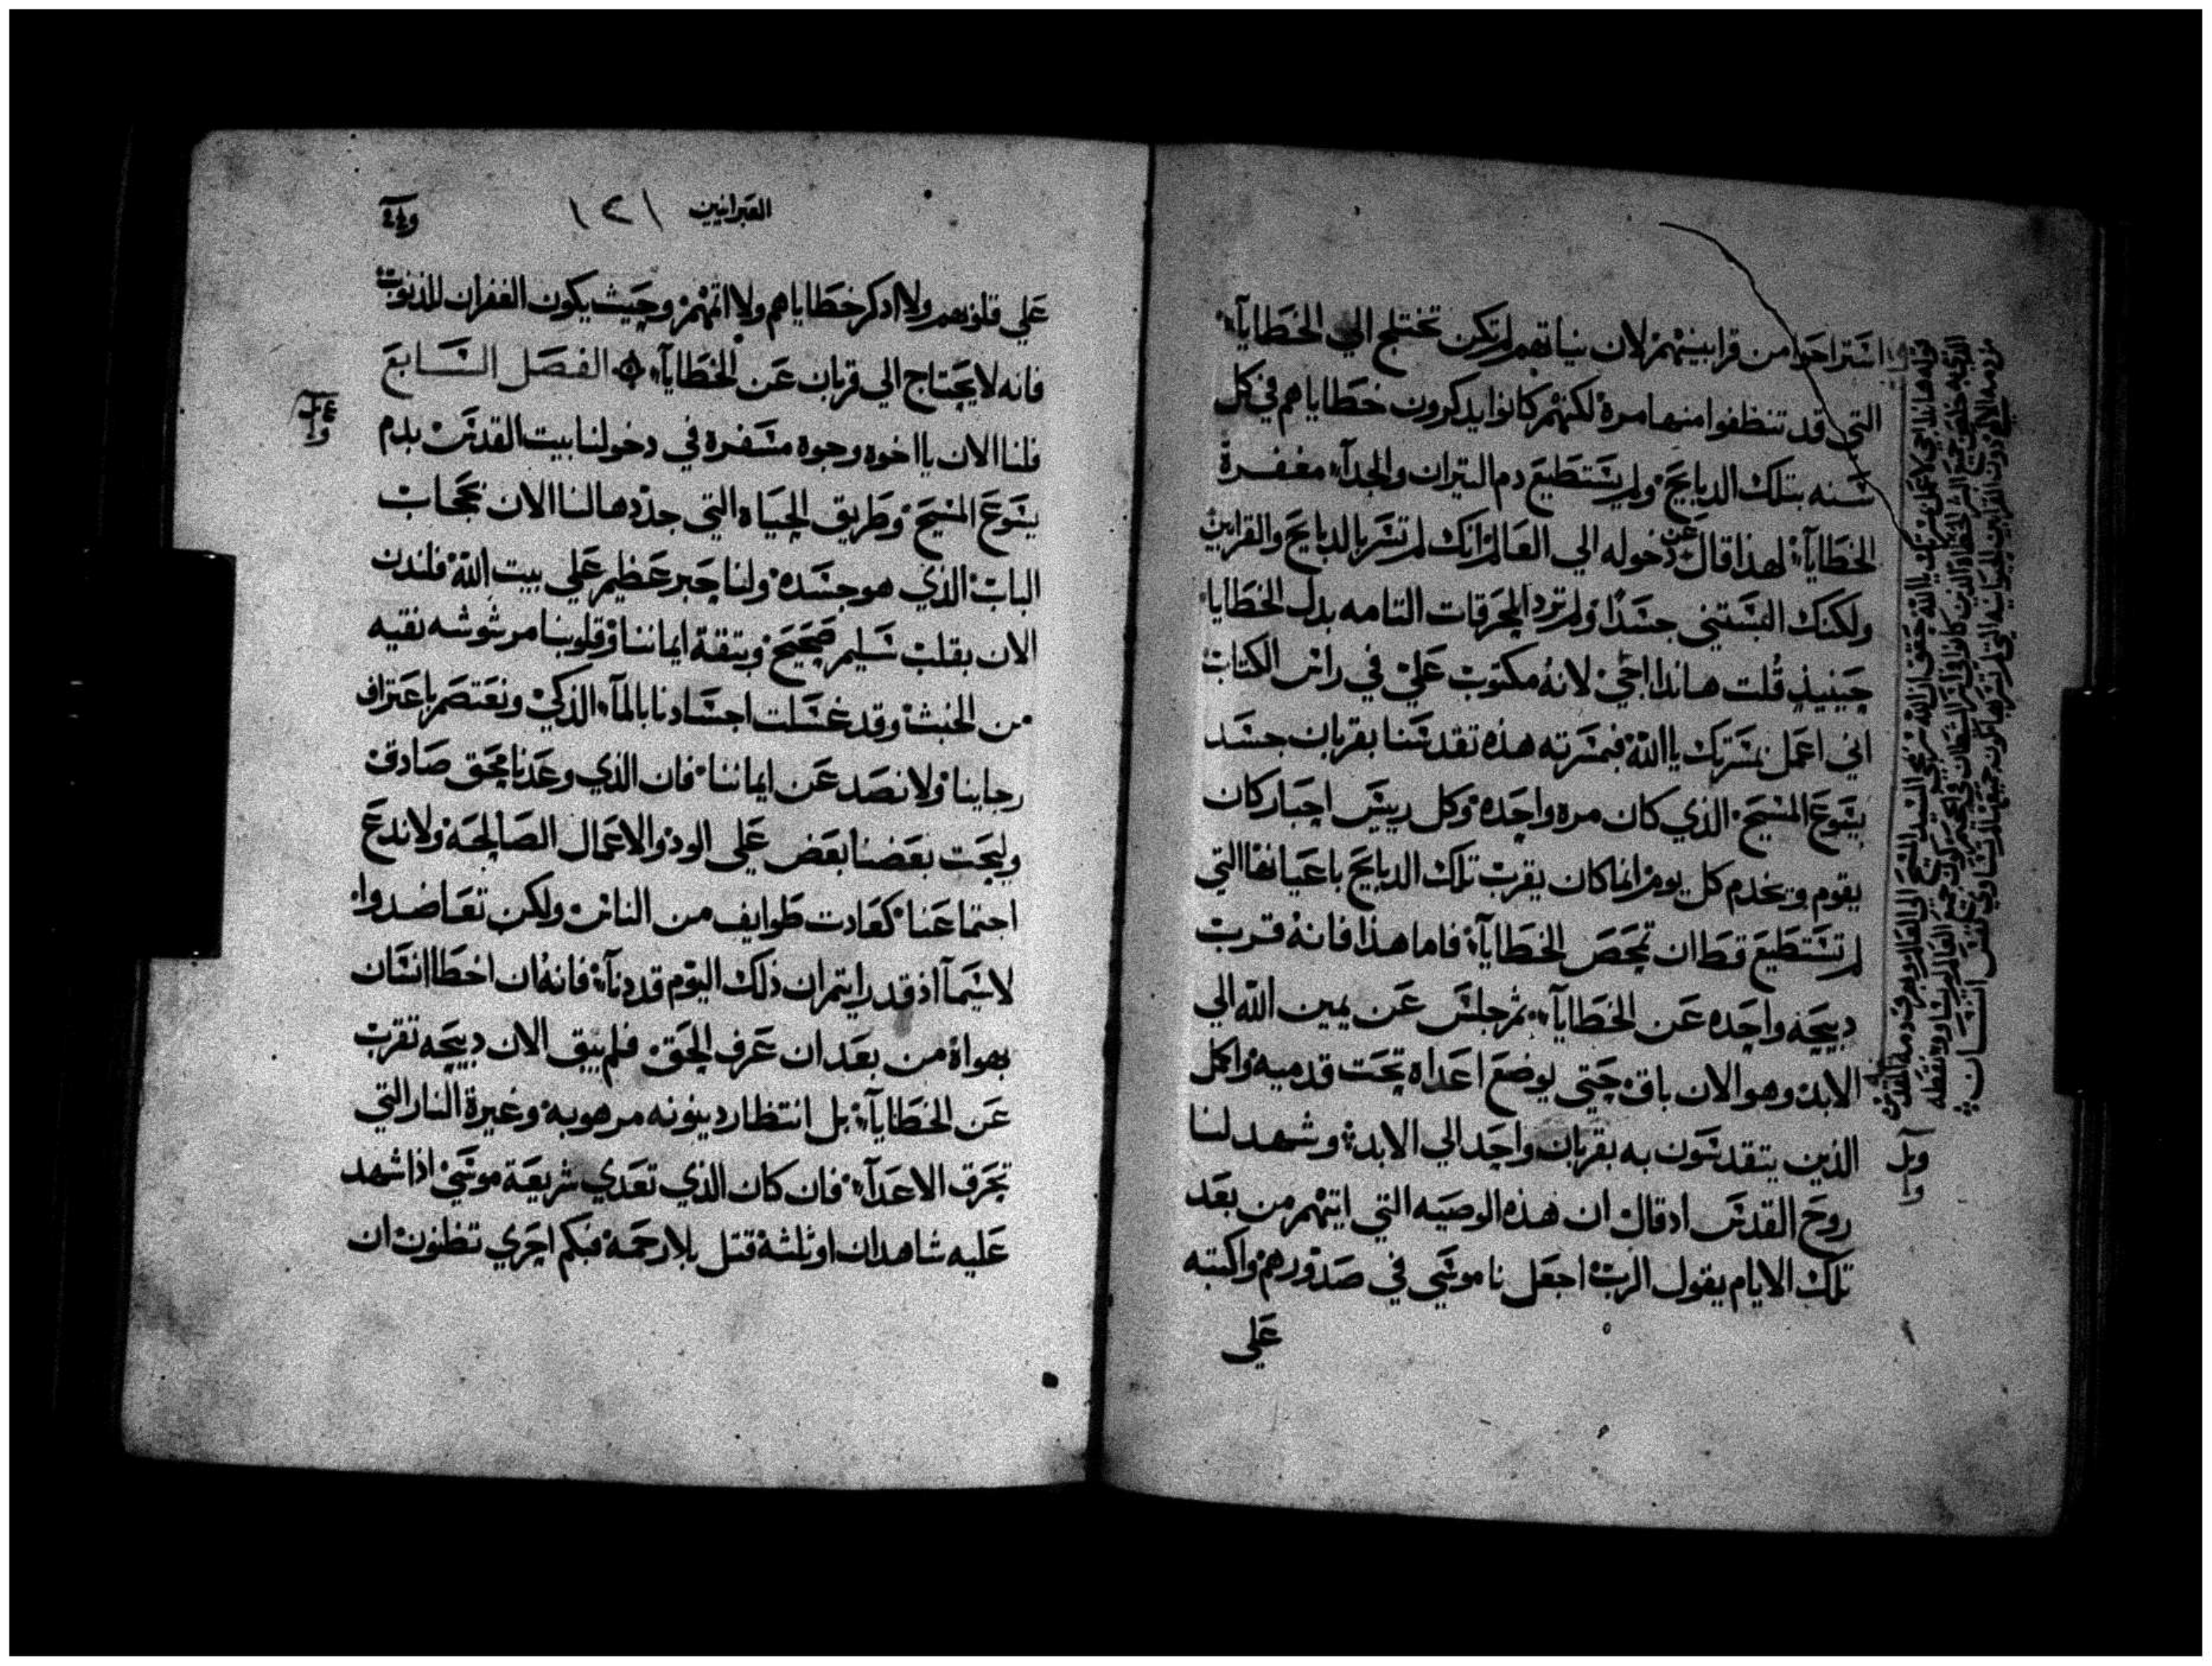 استراحوا من قرابينهم لان نياتهم لم تكن تختلج الي الخطايآ
التي قد تنظفوا منها مرة لكنهم كانوا يدكرون خطاياهم في كل
سنه بتلك الدبايح ولم يستطيع دم التيران والجدآ مغفرة
الخطايآ لهذا قال عن دخوله الي العالم انك لم تسر بالدبايح والقرابين
ولكنك البستني جسدا ولم ترد المحرقات التامه بدل الخطايا
حينيذ قلت هانذا اجي لانه مكتوب علي في راس الكتاب
اني اعمل بمسرتك ياالله فبمسرته هذه تقدسنا بقربان جسد
يسوع المسيح الذي كان مره واحده وكل رييس احبار كان
يقوم ويخدم كل يوم انما كان يقرب تلك الدبايح باعيانها التي
لم تستطيع قط ان تمحص الخطايآ فاما هذا فانه قرب
دبيحه واحده عن الخطايآ ثم جلس عن يمين الله الي
الابد وهو الان باق حتي يوضع اعداه تحت قدميه واكمل
الذين يتقدسون به بقربان واحد الي الابد وشهد لنا
روح القدس اد قال ان هذه الوصيه التي اتيتهم من بعد
تلك الايام يقول الرب اجعل ناموسي في صدورهم واكتبه
علي
العبرانيين ١٢١
علي قلوبهم ولا ادكر خطاياهم ولا اثمهم وحيث يكون الغفران للذنوب
فانه لا يحتاج الي قربان عن الخطايآ الفصل السابع
فلنا الان يا اخوه وجوه مسفره في دخولنا بيت القدس بدم
يسوع المسيح وطريق الحياه التي جددها لنا الان بحجاب
الباب الذي هو جسده ولنا حبر عظيم علي بيت الله فلندن
الان بقلب سليم صحيح وبتقة ايماننا وقلوبنا مرشوشه نقيه
من الخبث وقد غسلت اجسادنا بالمآ الذكي ونعتصم باعتراف
رجاينا ولا نصد عن ايماننا فان الذي وعدنا محق صادق
وليحت بعضنا بعض علي الود والاعمال الصالحة ولا ندع
اجتماعنا كعادت طوايف من الناس ولكن تعاضدوا
لاسيمآ اذ قد رايتم ان ذلك اليوم قد دنآ فانه ان اخطا انسان
بهواه من بعد ان عرف الحق فلم يبق الان دبيحه تقرب
عن الخطايآ بل انتظار دينونه مرهوبة وغيرة النار التي
تحرق الاعدآ فان كان الذي تعدي شريعة موسي اذا شهد
عليه شاهدان او ثلثة قتل بلا رحمة فبكم احري تظنون ان